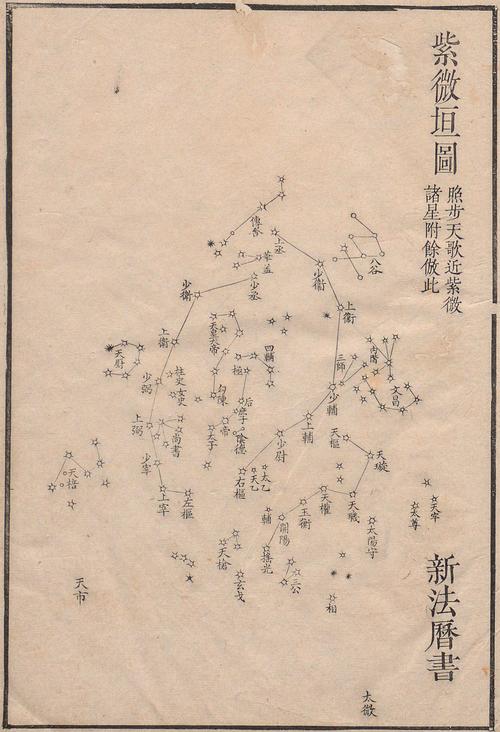 紫微垣圖
照步天歌近紫微
諸星附餘倣此
新法曆書
八谷
傳舍
上丞
華蓋
少丞
少衛
上衛
少衛
上衛
天皇大帝
四輔
三師
內階
文昌
少輔
上輔
少尉
右樞
天廚
少弼
上弼
少宰
上宰
左樞
柱史
女史
尚書
勾陳
極
后
庶子
帝
太子
陰德
太乙
天乙
天樞
天璇
天璣
天權
玉衡
開陽
輔
搖光
天棓
天槍
玄戈
三公
相
太陽守
太尊
天牢
天市
太微